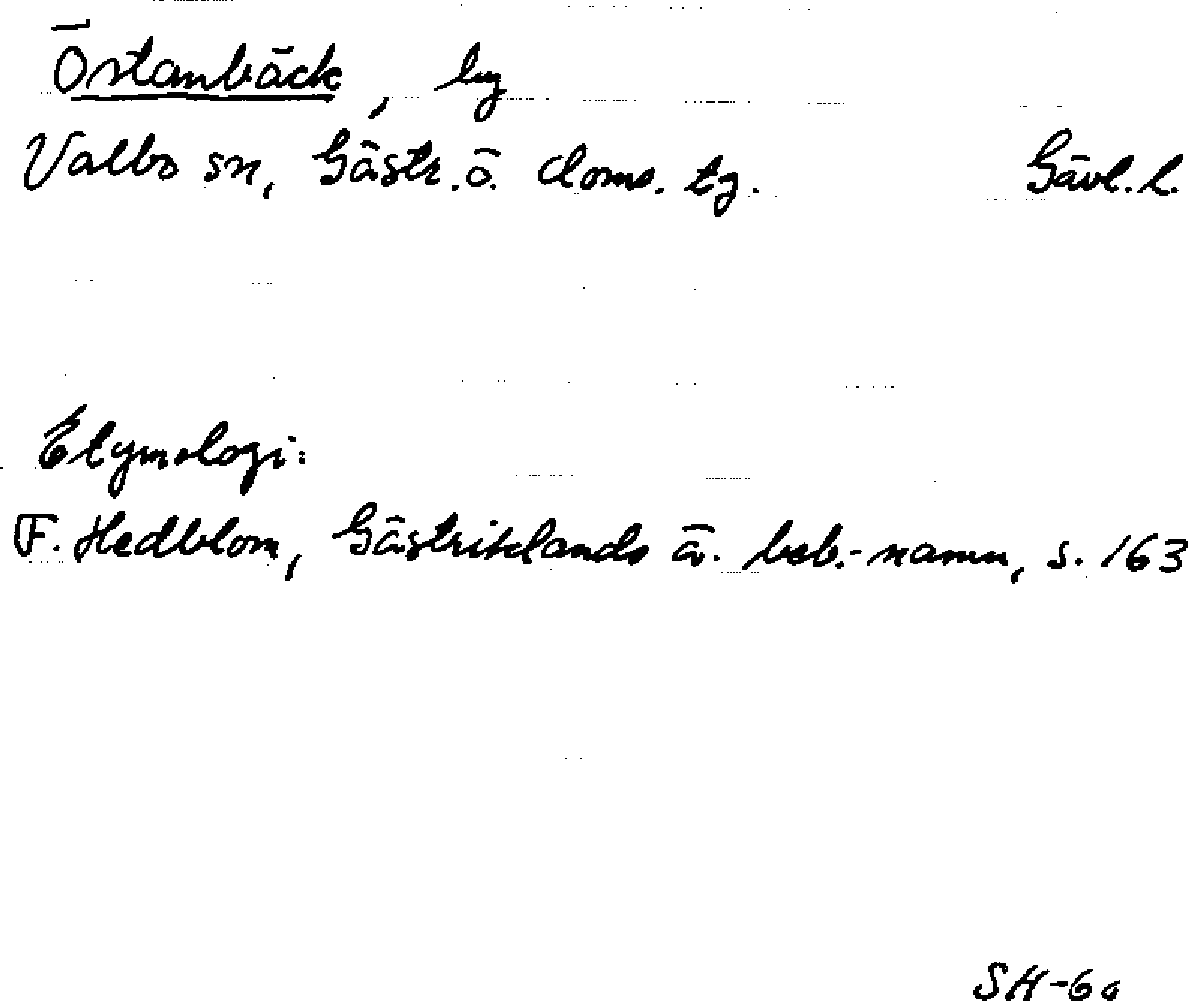 Östanbäck, by
Valbo sn, Gästr. ö. doms. tg. Gävl. l.
Etymologi:
F. Hedblom, Gästriklands ä. beb.-namn, s. 163
SH-60